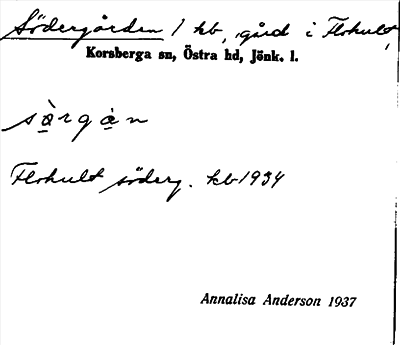 Södergården / kb, gård i Flohult,
Korsberga sn, Östra hd, Jönk. l.
sàrgàn
Flohult söderg. kb 1934
Annalisa Anderson 1937